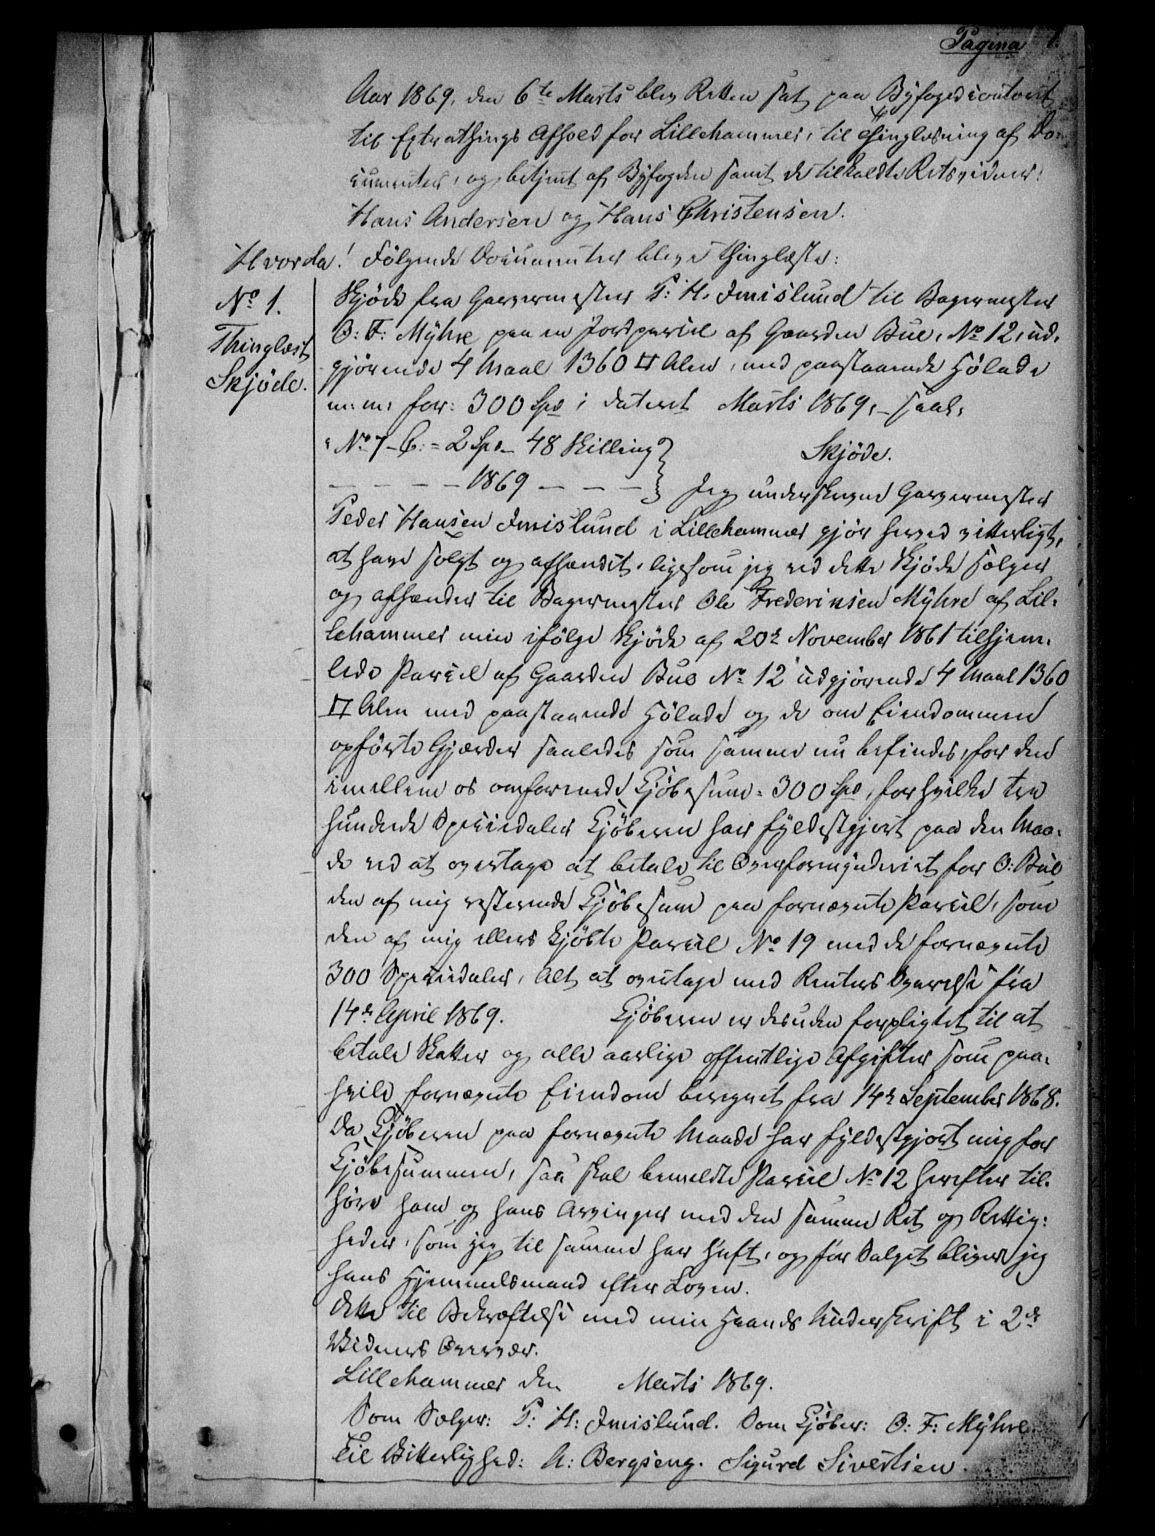 Pagina 1.
Aar 1869, den 6te Marts blev Retten sat paa Byfogedcontoret
til Extrathings Afhold for Lillehammer, til Thinglæsning af Do-
cumenter, og betjent af Byfogden samt de tilkaldte Retsvidner:
Hans Andersen og Hans Christensen.
Hvorda! Følgende Documenter bleve thinglæste:
No 1.
Thinglæst
Skjöde.
Skjöde fra Garvermester P: H. Imislund til Bagermester
O: F: Mÿhre paa en Jordparcel af Gaarden Bue, No 12, ud-
gjörende 4 Maal 1360 □ Alen, med paastaaende Hölade
m: m: for: 300 Spd; dateret Marts 1869, – saal:
"No 7 – C: = 2 Spd – 48 Skilling
– – – – 1869 – – –
Skjöde.
Jeg underskrevne Garvermester
Peder Hansen Imislund i Lillehammer gjör herved vitterligt,
at have solgt og afhændet, ligesom jeg ved dette Skjöde sælger
og afhænder til Bagermester Ole Frederiksen Mÿhre af Lil-
lehammer min ifölge Skjöde af 20de November 1861 tilhjem-
lede Parcel af Gaarden Bue No 12 udgjörende 4 Maal 1360
□ Alen med paastaaende Hölade og de om Eiendommen
opförte Gjærder saaledes som samme nu befindes, for den
imellem os omforenede Kjöbesum = 300 Spd, for hvilke tre
hundrede Speciedaler Kjöberen har fyldestgjort paa den Maa-
de ved at overtage at betale til Overformynderiet for O: Bue
den af mig resterende Kjöbesum paa fornævnte Parcel, som
den af mig ellers kjöbte Parcel No 19 med de fornævnte
300 Speciedaler, Alt at overtage med Renters Svarelse fra
14de April 1869. Kjöberen er desuden forpligtet til at
betale Skatter og alle aarlige offentlige Afgifter som paa-
hvile fornævnte Eiendom beregnet fra 14de September 1868.
Da Kjöberen paa fornævnte Maade har fyldestgjort mig for
Kjöbesummen, saa skal bemeldte Parcel No 12 herefter til-
höre ham og hans Arvinger med den samme Ret og Rettig-
heder, som jeg til samme har haft, og for Salget bliver jeg
hans Hjemmelsmand efter Loven.
Dette til Bekræftelse med min Haands Underskrift i 2de
Vidners Overvær.
Lillehammer den Marts 1869.
Som Sælger: P: H: Imislund. Som Kjöber: O: F: Mÿhre.
Til Vitterlighed: A: Bergseng. Sigurd Sivertsen.